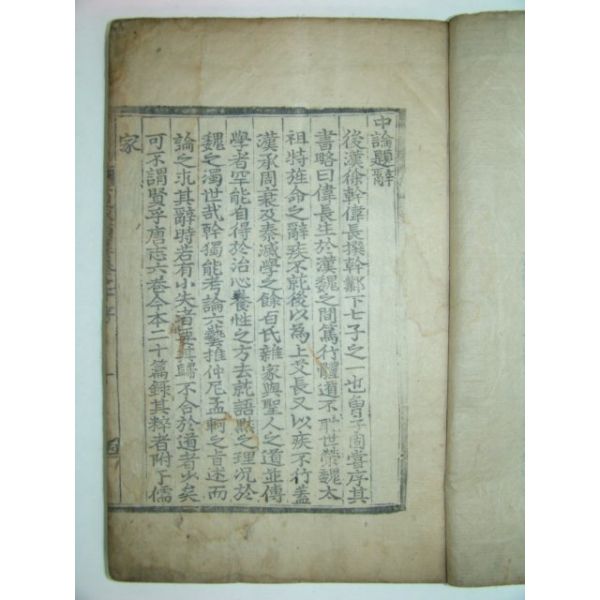 中論題辭
後漢徐幹偉長撰幹鄴下七子之一也曾子固嘗序其
書略曰偉長生於漢魏之間篤行體道不耽世榮魏太
祖特旌命之辭疾不就後以為上艾長又以疾不行蓋
漢承周衰及秦滅學之餘百氏雜家與聖人之道並傳
學者罕能自得於治心養性之方去就語黙之理况於
魏之濁世哉幹獨能考論六藝推仲尼孟軻之旨述而
論之求其辭時若有小失者要其歸不合於道者少矣
可不謂賢乎唐志六卷今本二十篇錄其粹者附于儒
家